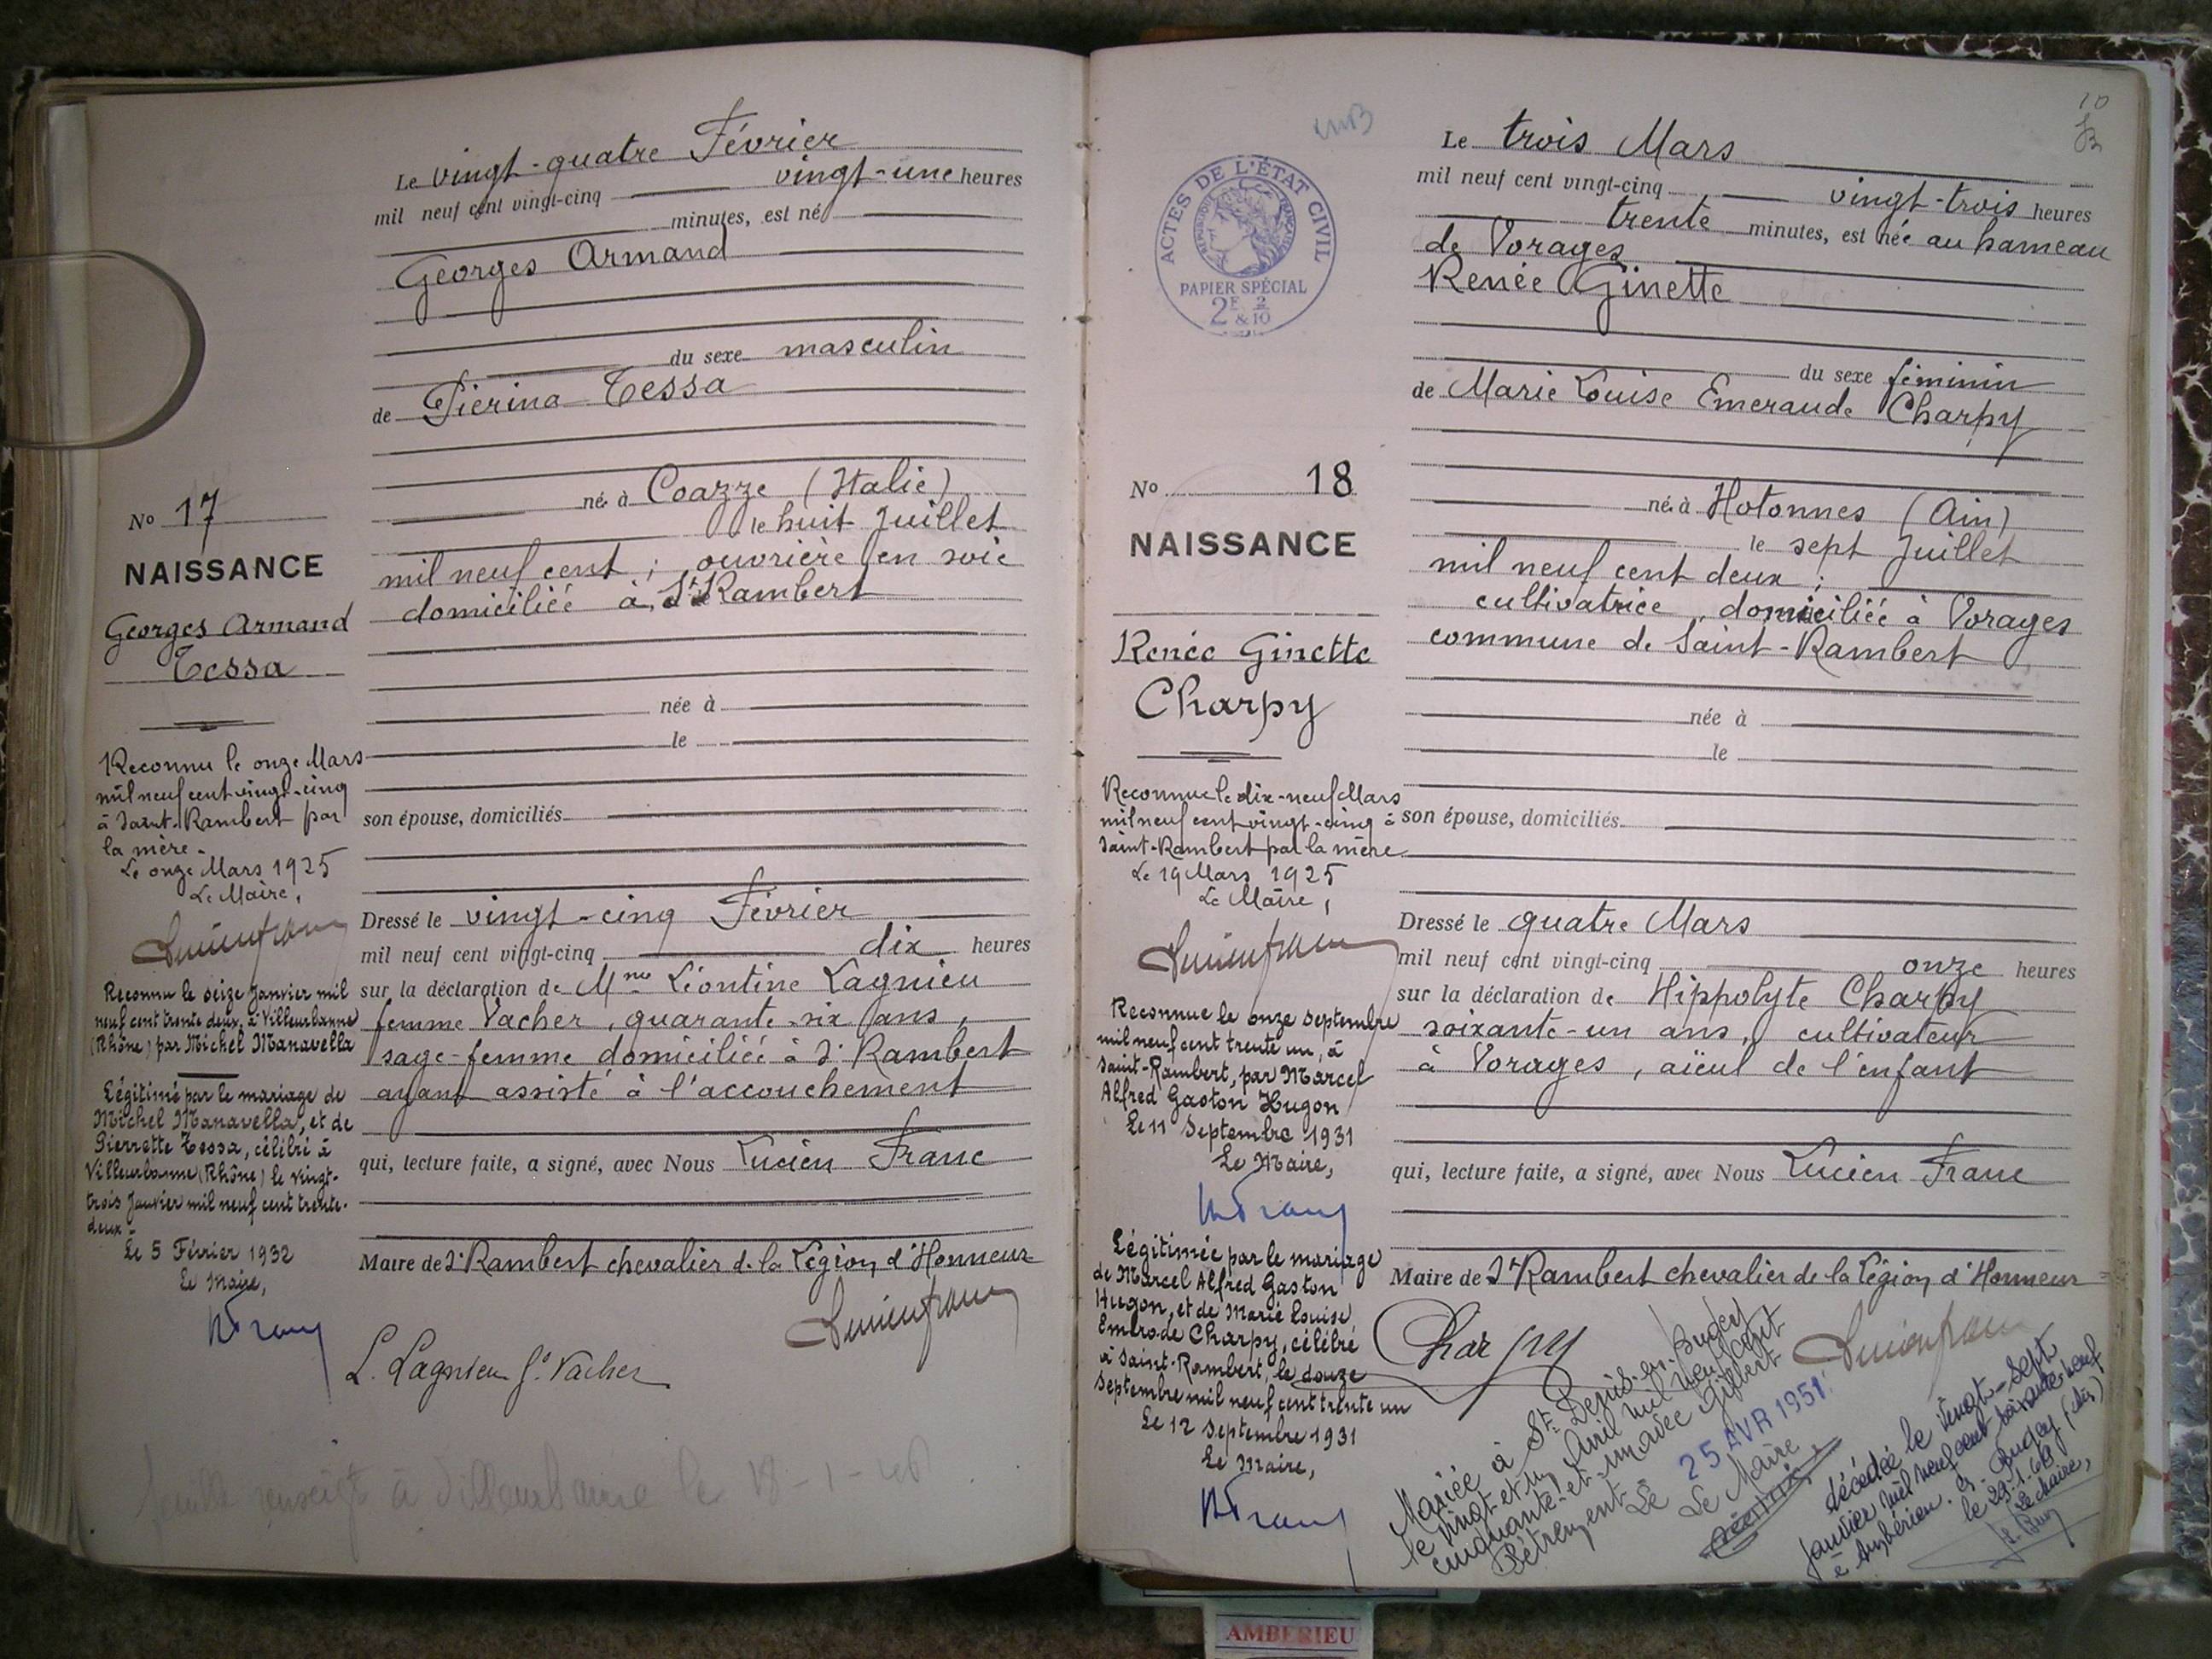 Le vingt-quatre Février
mil neuf cent vingt-cinq vingt-une heures
minutes, est né
Georges Armand
du sexe masculin
de Pierina Tessa
né à Coazze (Italie)
le huit Juillet
mil neuf cent ; ouvrière en soie
domiciliée à St Rambert
née à
le
son épouse, domiciliés
Dressé le vingt-cinq Février
mil neuf cent vingt-cinq dix heures
sur la déclaration de Mme Léontine Lagnieu
femme Vacher, quarante-six ans,
sage-femme domiciliée à St Rambert
ayant assisté à l'accouchement
qui, lecture faite, a signé, avec Nous Lucien Franc
Maire de St Rambert chevalier de la Légion d'Honneur
L. Lagnieu fe Vacher
No 17
NAISSANCE
Georges Armand
Tessa
Reconnu le onze Mars
mil neuf cent vingt-cinq
à Saint-Rambert par
la mère.
Le onze Mars 1925
Le Maire,
Lucien Franc
Reconnu le seize Janvier mil
neuf cent trente deux, à Villeurbanne
(Rhône) par Michel Manavella
Légitimé par le mariage de
Michel Manavella, et de
Pierrette Tessa, célébré à
Villeurbanne (Rhône) le vingt-
trois Janvier mil neuf cent trente-
deux
Le 5 Février 1932
Le Maire,
à Villeurbanne le 18-1-
10
ACTES DE L'ÉTAT CIVIL
RÉPUBLIQUE FRANÇAISE
PAPIER SPÉCIAL
2F 2
& 10
Le trois Mars
mil neuf cent vingt-cinq vingt-trois heures
trente minutes, est née au hameau
de Vorages
Renée Ginette
du sexe féminin
de Marie Louise Emeraude Charpy
née à Hotonnes (Ain)
le sept Juillet
mil neuf cent deux ;
cultivatrice, domiciliée à Vorages
commune de Saint-Rambert
née à
le
son épouse, domiciliés
Dressé le quatre Mars
mil neuf cent vingt-cinq onze heures
sur la déclaration de Hippolyte Charpy
soixante-un ans, cultivateur
à Vorages, aïeul de l'enfant
qui, lecture faite, a signé, avec Nous Lucien Franc
Maire de St Rambert chevalier de la Légion d'Honneur
Charpy
Lucien Franc
No 18
NAISSANCE
Renée Ginette
Charpy
Reconnue le dix-neuf Mars
mil neuf cent vingt-cinq à
Saint-Rambert par la mère
Le 19 Mars 1925
Le Maire,
Lucien Franc
Reconnue le onze Septembre
mil neuf cent trente un, à
Saint-Rambert, par Marcel
Alfred Gaston Hugon
Le 11 Septembre 1931
Le Maire,
Légitimée par le mariage
de Marcel Alfred Gaston
Hugon, et de Marie Louise
Emerode Charpy, célébré
à Saint-Rambert, le douze
Septembre mil neuf cent trente un
Le 12 Septembre 1931
Le Maire,
Mariée à St Denis-en-Bugey
le vingt et un Avril mil neuf cent
cinquante-et-un avec Gilbert
Pétrement
Le 25 AVR 1951
Le Maire
décédée le vingt-sept
Janvier mil neuf cent soixante neuf
à Ambérieu-en-Bugey (Ain)
le 29.1.69
Le Maire,
AMBERIEU